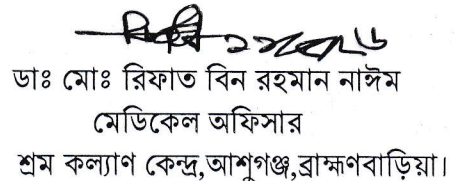 ডাঃ মোঃ রিফাত বিন রহমান নাঈম
মেডিকেল অফিসার
শ্রম কল্যাণ কেন্দ্র,আশুগঞ্জ,ব্রাহ্মণবাড়িয়া।